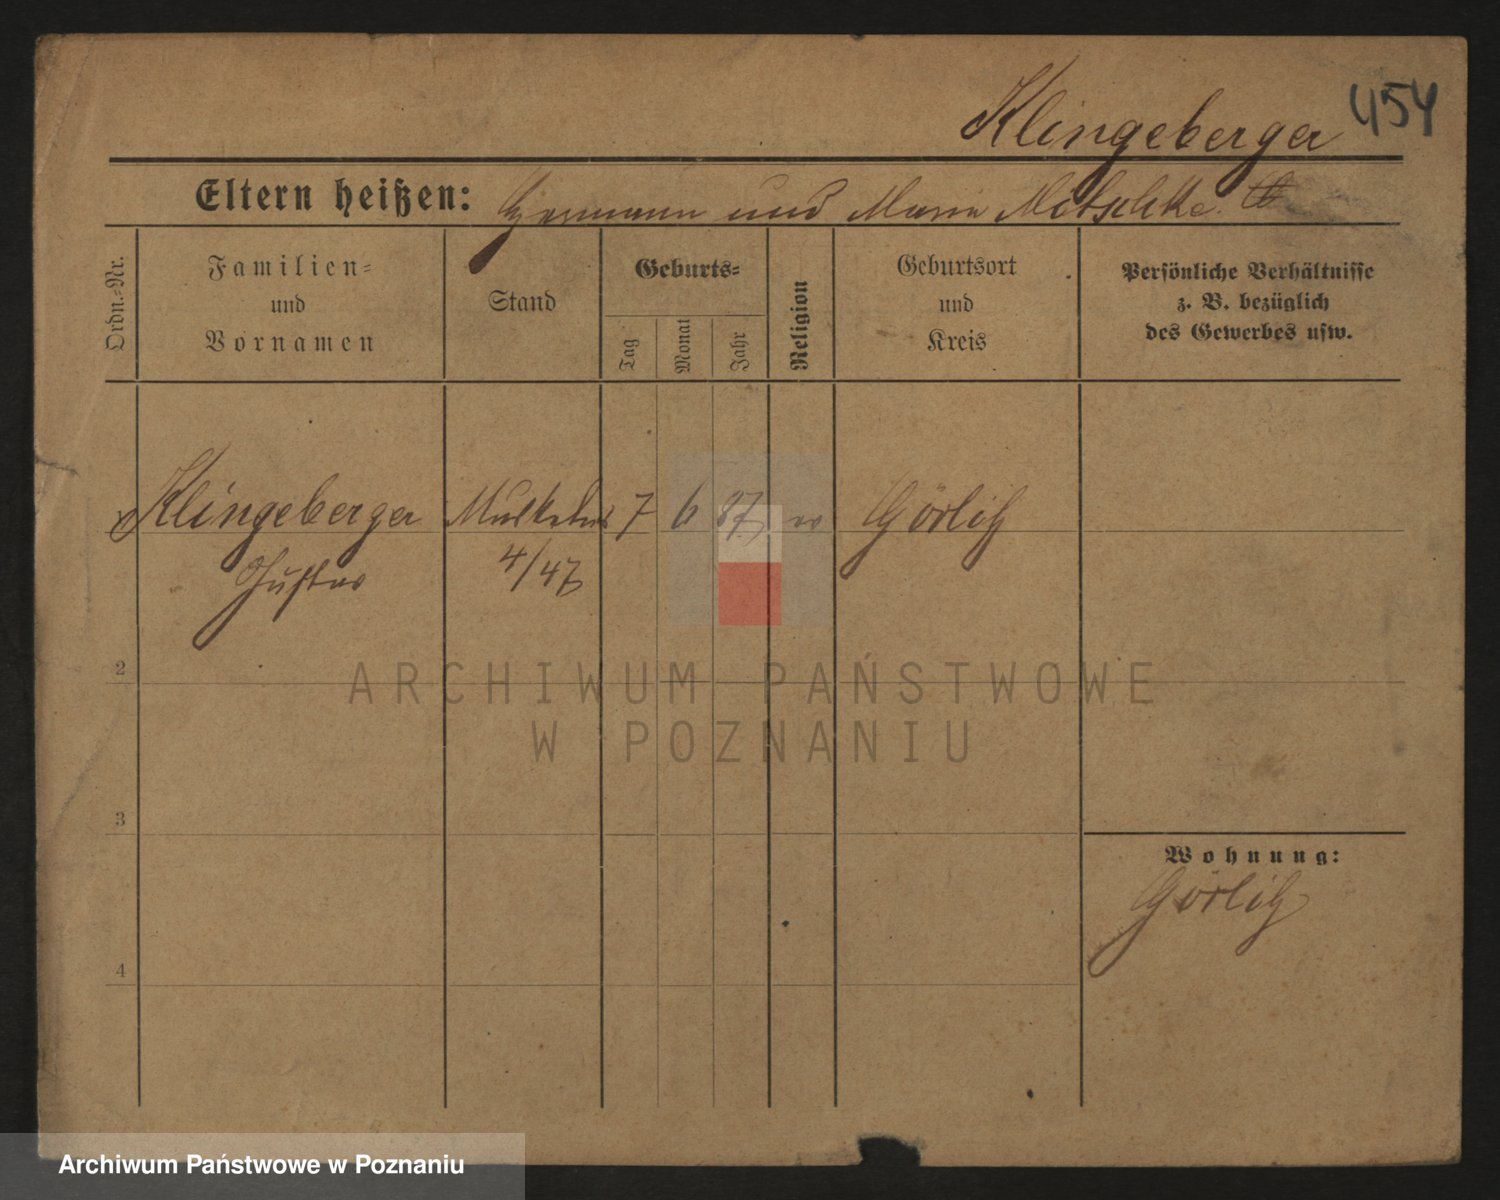 454
Klingeberger
Eltern heißen: Hermann und Maria Mitschke.
Ordn.-Nr.
Familien-
und
Vornamen
Stand
Geburts-
Tag
Monat
Jahr
Religion
Geburtsort
und
Kreis
Persönliche Verhältnisse
z. B. bezüglich
des Gewerbes usw.
Klingeberger Musketier 7 6 87 ev Görlitz
Gustav 4/47
2
3
4
Wohnung:
Görlitz
ARCHIWUM PAŃSTWOWE
W POZNANIU
Archiwum Państwowe w Poznaniu